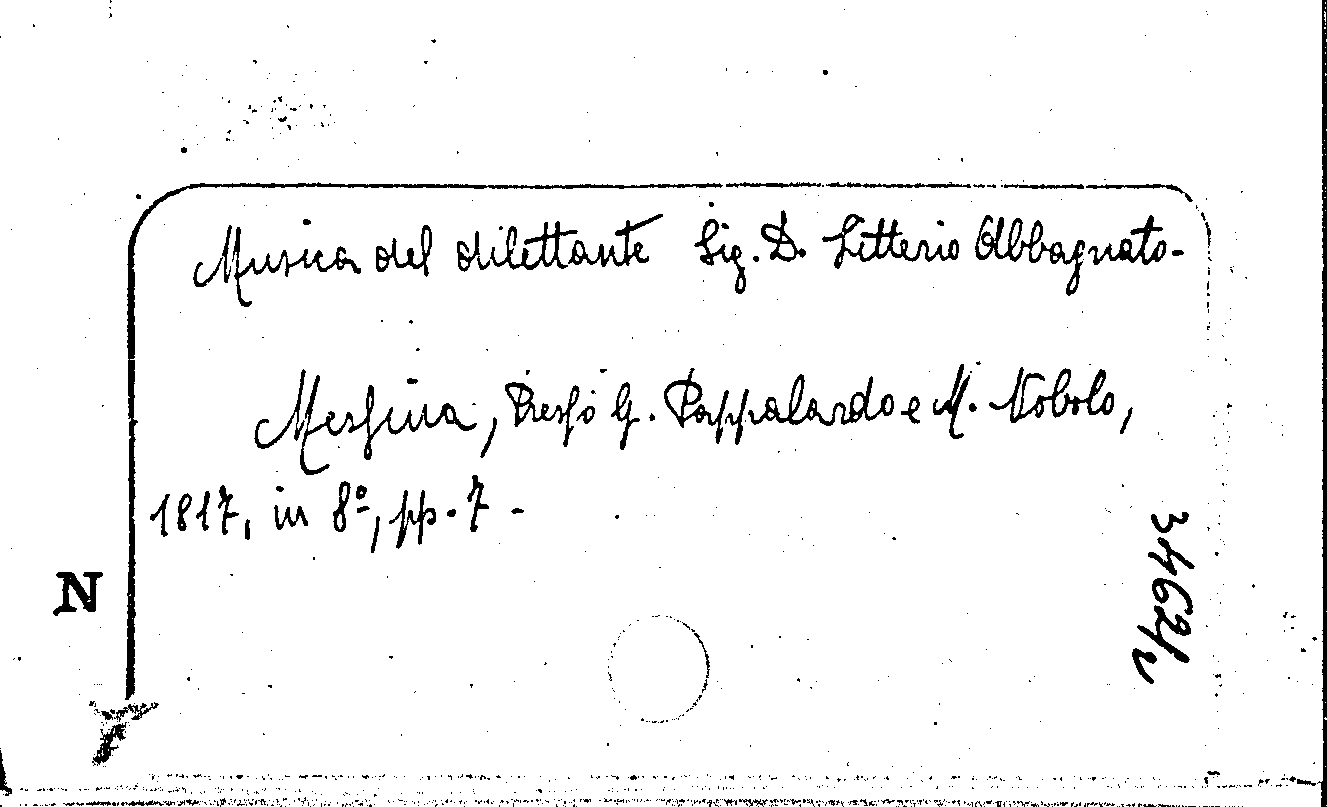 Musica del dilettante Sig. D. Litterio Abbagnato-
Messina, Presso G. Pappalardo e M. Nobolo,
1817, in 8º, pp. 7 -
N
3462/2